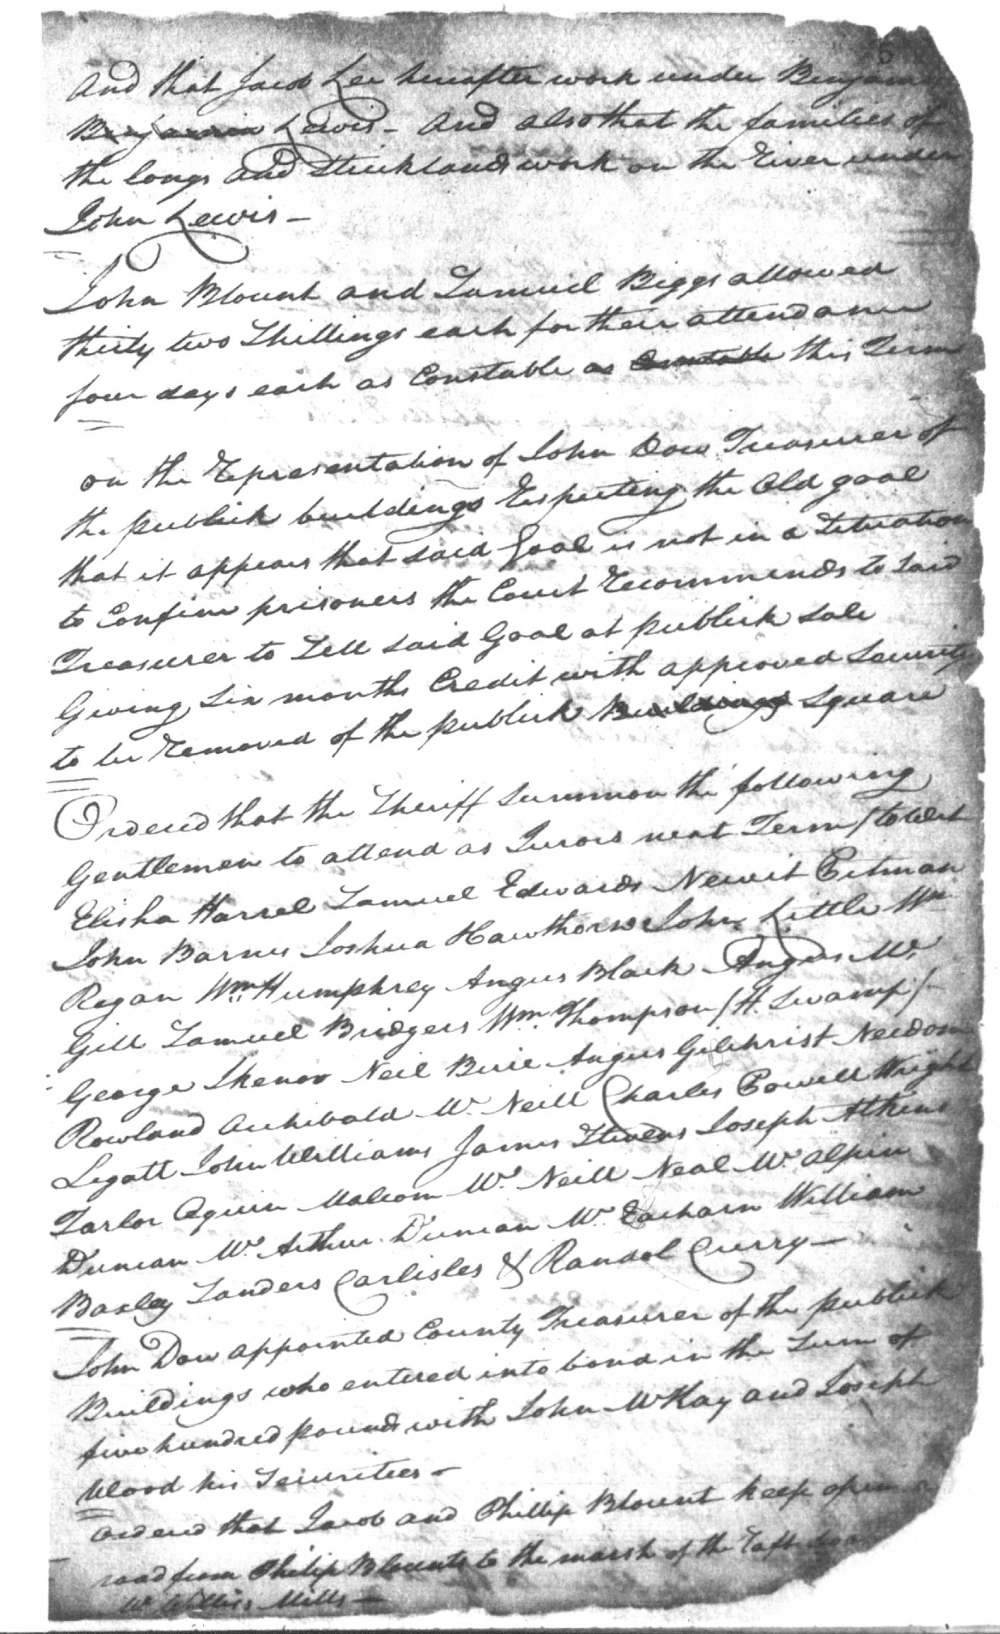 And that Jacob Lee hereafter work under Benjamin
Benjamin Lewis - And also that the families of
the longs and Stricklands work on the River under
John Lewis -
John Blount and Samuel Biggs allowed
thirty two Shillings each for their attendance
four days each as Constable as Constable this Term
on the Representation of John Dow Treasurer of
the publick buildings Respecting the Old goal
that it appears that said Goal is not in a Situation
to Confine prisoners the Court Recommends to said
Treasurer to Sell said Goal at publick sale
Giving Six months Credit with approved Security
to be Removed of the publick Buildings Square
Ordered that the Sheriff Summon the following
Gentlemen to attend as Jurors next Term / towit
Elisha Harrel Samuel Edwards Newit Pitman
John Barnes Joshua Hawthorne John Little Wm
Regan Wm Humphrey Angus Black Angus Mc
Gill Samuel Bridgers Wm Thompson / H. Swamp / -
George Skenor Neil Buie Angus Gilchrist Needom
Rowland Archibald Mc Neill Charles Powell Wright
Legatt John Williams James Stevens Joseph Atkins
Tarlor Oquin Malcom Mc Neill Neal Mc alpin
Duncan Mc Arthur Duncan Mc Eacharn William
Baxley Sanders Carlisles & Randol Curry -
John Dow appointed County Treasurer of the publick
Buildings who entered into bond in the Sum of
five hundred pounds with John McKay and Joseph
Wood his Securities -
ordered that Jacob and Phillip Blount keep open
road from Philip Blounts to the marsh of the Raft
Mc Willis Mills -